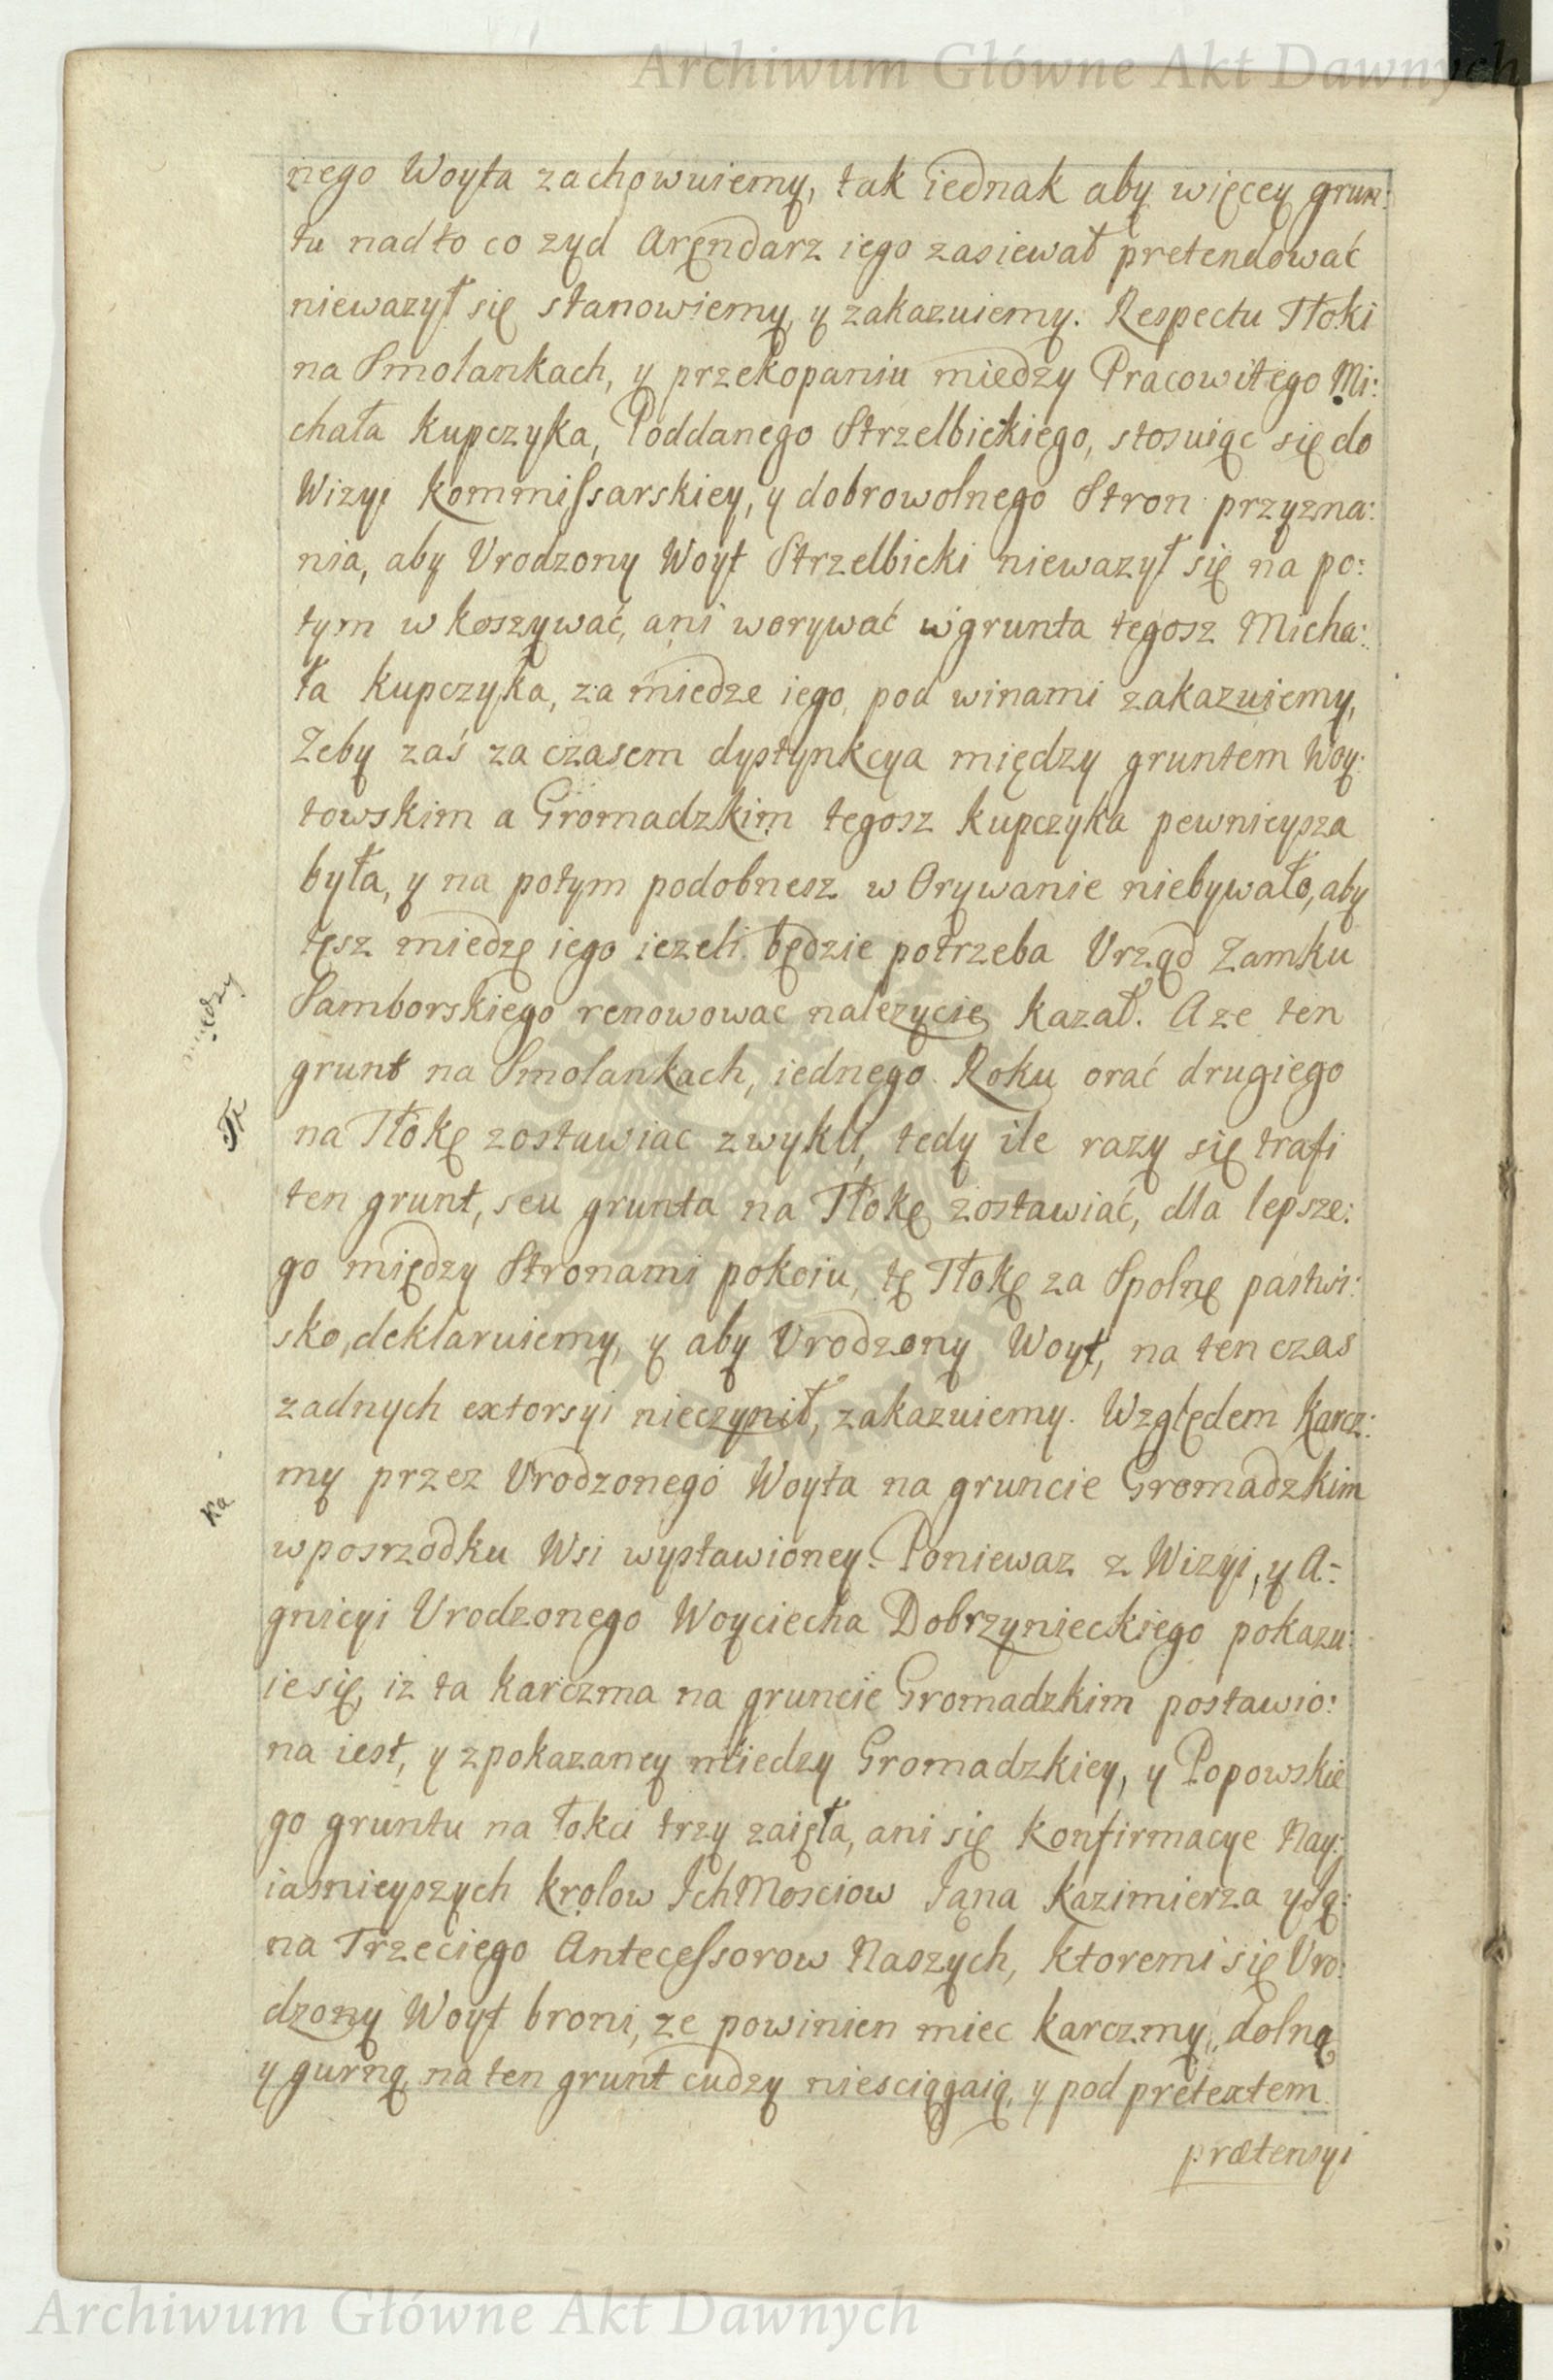 Archiwum Główne Akt Dawnych
nego Woyta zachowuiemy, tak iednak aby więcey grun:
tu nadto co zyd Aręndarz iego zasiewał pretendować
niewazył się stanowiemy, y zakazuiemy. Respectu Tłoki
na Smolankach, y przekopaniu miedzy Pracowitego Mi:
chała Kupczyka, Poddanego Strzelbickiego, stosuiąc się do
Wizyi Kommissarskiey, y dobrowolnego Stron przyzna:
nia, aby Vrodzony Woyt Strzelbicki niewazył się na po:
tym w koszywać, ani worywać w grunta tegosz Micha:
ła Kupczyka, za miedze iego, pod winami zakazuiemy,
Zeby zaś za czasem dystynkcya między gruntem Woy:
towskim a Gromadzkim tegosz Kupczyka pewnieysza
była, y na potym podobnesz w Orywanie niebywało, aby
tęsz miedzę iego iezeli będzie potrzeba Vrząd Zamku
miedzy
Samborskiego renowowac nalezycie kazał. A ze ten
grunt na Smolankach, iednego Roku orać drugiego
Tł
na Tłokę zostawiac zwykli, tedy ile razy się trafi
ten grunt, seu grunta na Tłokę zostawiać, dla lepsze:
go między Stronami pokoiu, tę Tłokę za Spolnę pastwi:
sko, deklaruiemy, y aby Vrodzony Woyt, na ten czas
zadnych extorsyi nieczynił, zakazuiemy. Względem Karcz:
my przez Vrodzonego Woyta na gruncie Gromadzkim
Ka
wposrzodku Wsi wystawioney. Poniewaz z Wizyi, y A-
gnicyi Vrodzonego Woyciecha Dobrzynieckiego pokazu:
ie się, iz ta karczma na gruncie Gromadzkim postawio:
na iest, y zpokazaney miedzy Gromadzkiey, y Popowskie
go gruntu na łokci trzy zaięła, ani się Konfirmacye Nay:
iasnieyszych Krolow Ich Mosciow Jana Kazimierza y Ja:
na Trzeciego Antecessorow Naszych, ktoremi się Vro:
dzony Woyt broni, ze powinien miec karczmy, dolną
y gurną, na ten grunt cudzy niesciągaią, y pod pretextem
prætensyi
Archiwum Główne Akt Dawnych